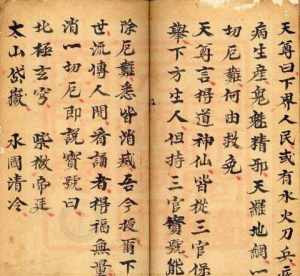 天尊曰下界人民或有水火刀兵
病生產鬼魅精邪天羅地網
切厄難何由救免
天尊言得道神仙皆從三官保
舉下方生人但持三官寶號能
除厄難悉皆消滅吾今授爾下
世流傳人間看誦者得福無量
消一切厄即說寶號曰
北極玄穹 紫微帝廷
太山岱嶽 水國清冷